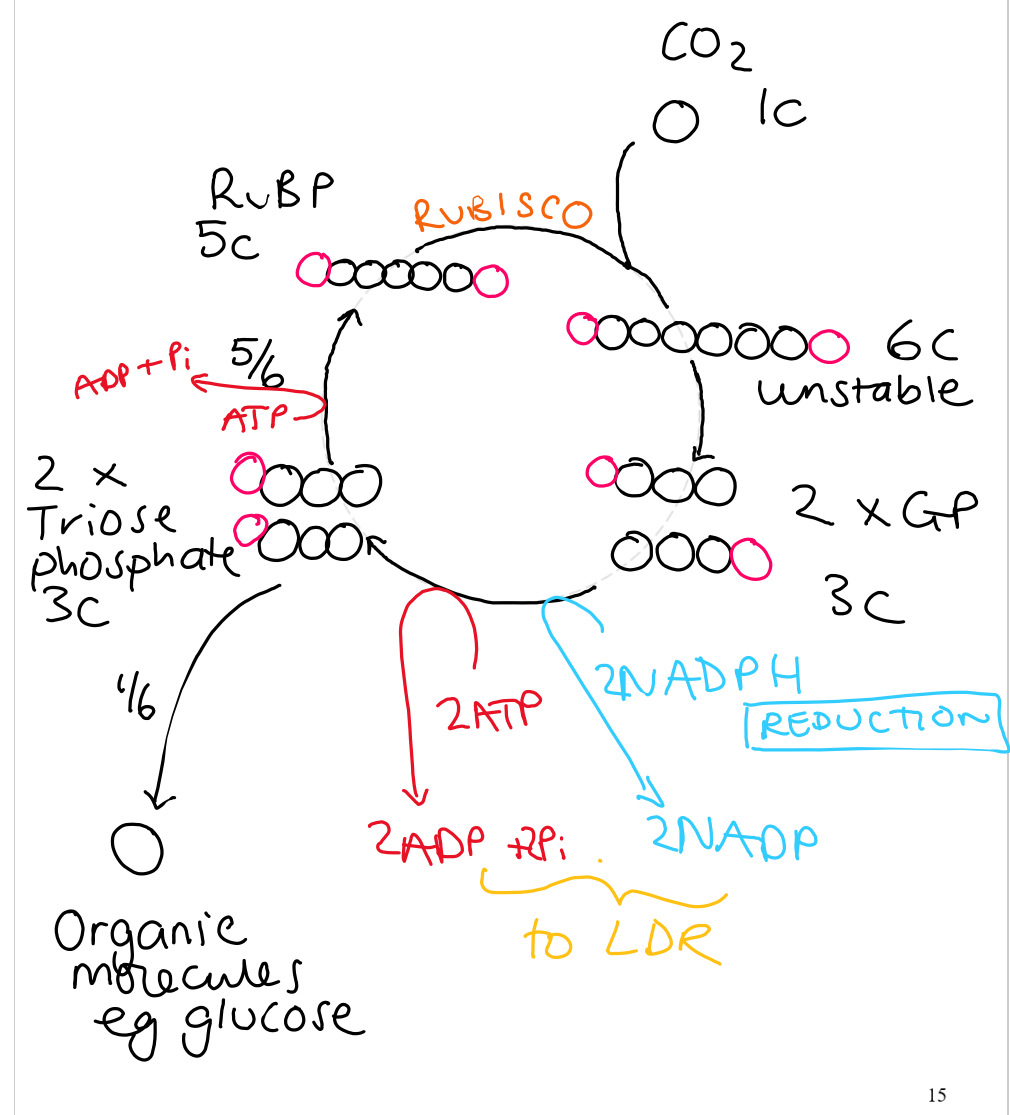 CO2
1C
RuBP
5C
RUBISCO
6C
unstable
ADP + Pi
5/6
ATP
2 x
Triose
phosphate
3C
2 x GP
3C
1/6
2ATP
2NADPH
REDUCTION
2ADP +2Pi
2NADP
to LDR
Organic
molecules
eg glucose
15